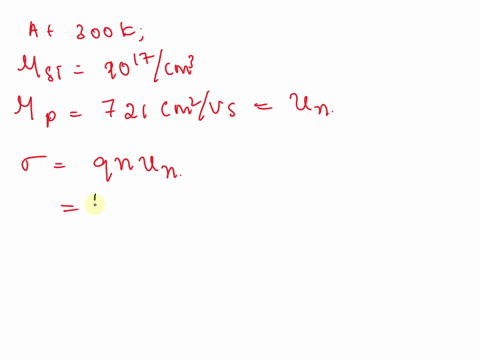 At 300k;
μSi = 20¹⁷/cm³
μp = 721 cm²/vs = un.
σ = qnun.
=